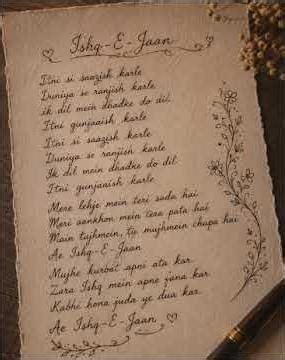 Ishq-E-Jaan
Itni si saazish karle
Duniya se ranjish karle
ik dil mein dhadke do dil
Itni gunjaaish karle
Itni si saazish karle
Duniya se ranjish karle
Ik dil mein dhadke do dil
Itni gunjaish karle
Mere lehje mein teri sada hai
Meri aankhon mein tera pata hai
Main tujhmein, tu mujhmein chupa hai
Ae Ishq-E-Jaan
Mujhe kurbat apni ata kar
Zara Ishq mein apne fana kar
Kabhi hona juda ye dua kar
Ae Ishq-E-Jaan